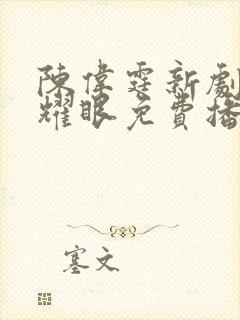 陳偉霆新劇
耀眼免費播
塞文